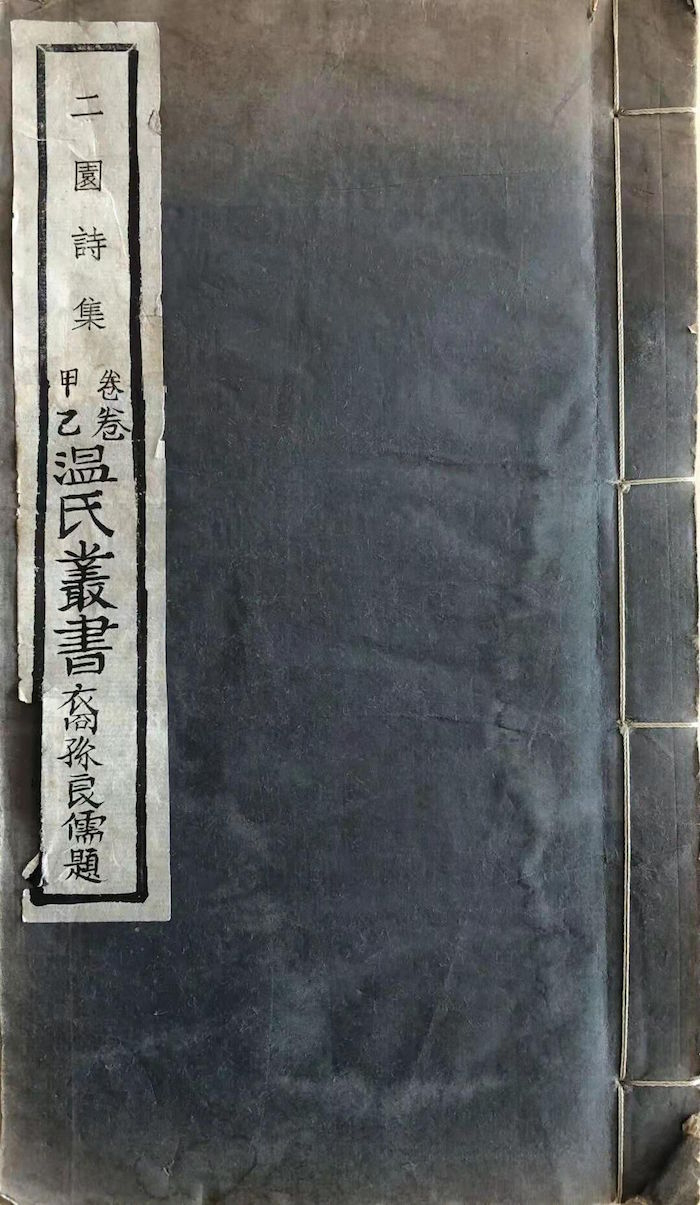 二園詩集
卷甲
卷乙
温氏叢書
裔孫良儒題